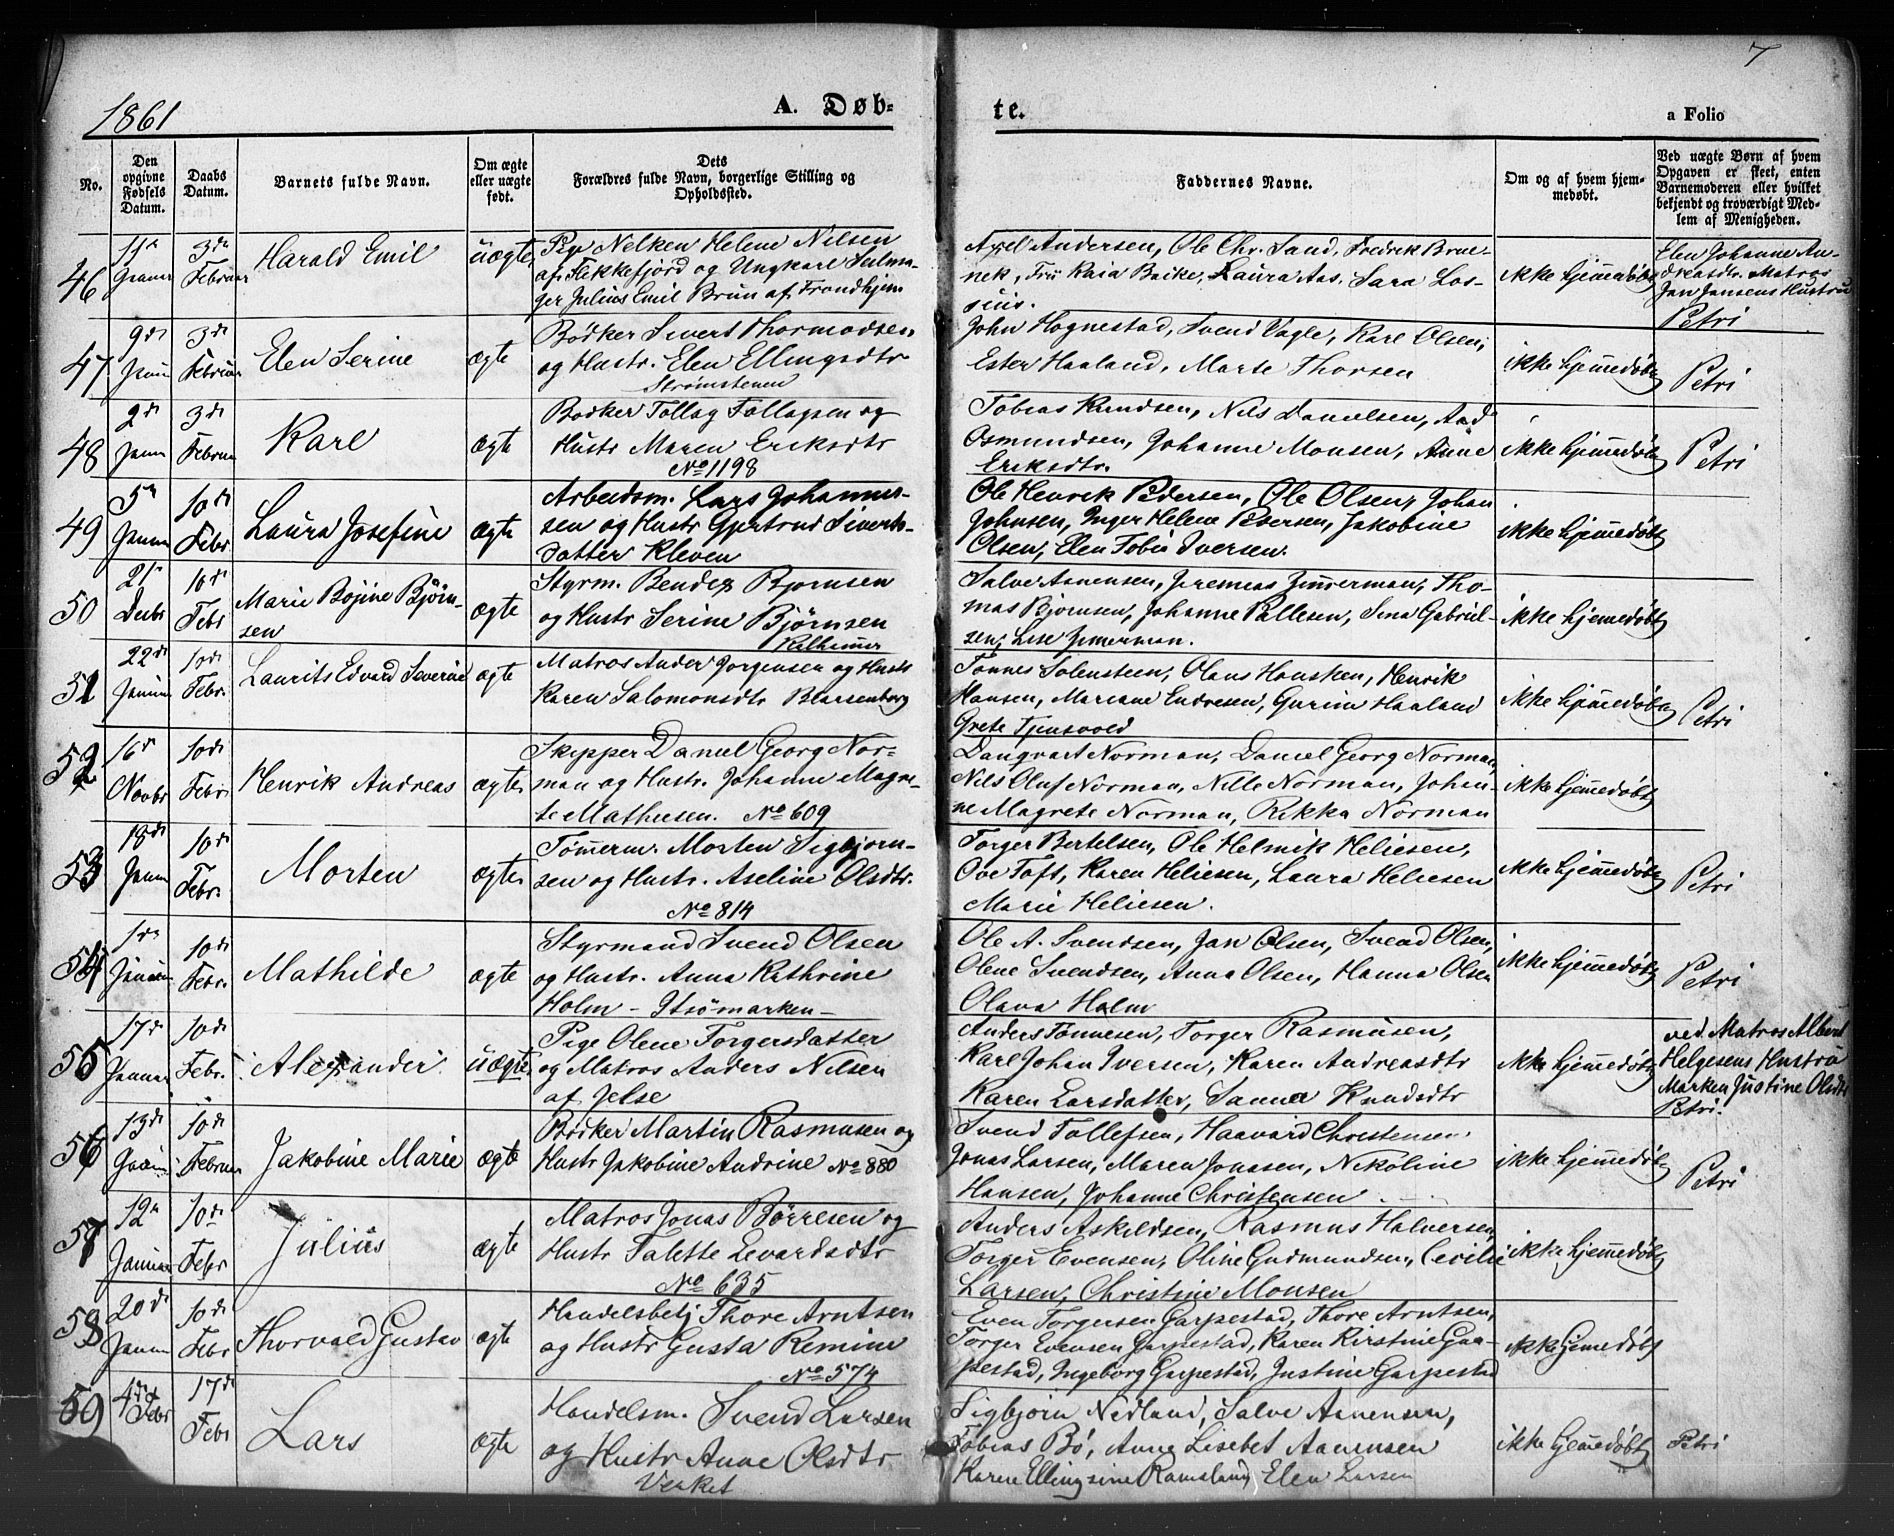 7
1861
A. Døb-
te.
a Folio
No.
Den
opgivne
Fødsels
Datum.
Daabs
Datum.
Barnets fulde Navn.
Om ægte
eller uægte
født.
Dets
Forældres fulde Navn, borgerlige Stilling og
Opholdssted.
Faddernes Navne.
Om og af hvem hjem-
medøbt.
Ved uægte Børn af hvem
Opgaven er skeet, enten
Barnemoderen eller hvilket
bekjendt og troværdigt Med-
lem af Menigheden.
46
11te
3de
Februar
Harald Emil
uægte
Pige Nelken Helene Nilsen
af Fækkefjord og Ungkarl
ger Julius Emil Brun af Trondhjem
Axel Andersen, Ole Chr. Sand, Fredrik Brue-
nek, Fru Kaia Backe, Laura Aas, Sara Los-
sius.
ikke hjemmedøbt
Elen Johanne An-
Matros
Jan Jansens Hustru
Petri
47
9de
Janu
3de
Februar
Elen Serine
ægte
Bødker Sivert Thormodsen
og Hustr. Elen Ellingsdtr
Strømstenen
John Hognestad, Svend Vagle, Karl Olsen,
Ester Haaland, Marte Thorsen
ikke hjemmedøbt
Petri
48
2de
Janu
3de
Februar
Karl
ægte
Bødker Tollag Tollagsen og
Hustr Maren Eriksdtr
No 1198
Tobias Knudsen, Nils Danielsen, Aad
Osmundsen, Johanne Monsen, Anne
Eriksdtr.
ikke hjemmedøbt
Petri
49
5te
Janu
10de
Febr
Laura Josefine
ægte
Arbeidsm. Lars Johannes-
sen og Hustr Gjertrud Siverts-
datter Kleven
Ole Henrik Pedersen, Ole Olsen, Johan
Johnsen, Inger Helene Petersen, Jakobine
Olsen, Elen Tobie Iversen.
ikke hjemmedøbt
50
21de
Decbr
10de
Febr
Marie Bøjine Bjørn-
sen
ægte
Styrm. Bendex Bjornsen
og Hustr Serine Bjørnsen
Salve Aanensen, Jeremias Zimmerman, Tho-
mas Bjornsen, Johanne Pallesen, Sina Gabriel-
sen, Lise Zimmerman.
ikke hjemmedøbt
51
22de
Januar
10de
Febr.
Laurits Edvard Severin
ægte
Matros Ander Jorgensen og Hustr
Karen Salomonsdtr Blaasenborg
Tønnes Solensteen, Olaus Hausken, Henrik
Hansen, Mariane Endresen, Gurine Haaland
Grete Tjensvold
ikke hjemmedøbt
Petri
52
16de
Novbr
10de
Febr
Henrik Andreas
ægte
Skipper Daniel Georg Nor-
man og Hustr. Johanne Magre-
te Mathiesen. No 609
Danqvart Norman, Daniel Georg Norman,
Nils Oluf Norman, Nille Norman, Johan-
ne Magrete Norman, Rikka Norman
ikke hjemmedøbt
53
18de
Janu
10de
Febr.
Morten
ægte
Tømerm. Morten Sigbjorn-
sen og Hustr. Aseline Olsdtr.
No 814
Torger Bertelsen, Ole Helmik Heliesen,
Ove Toft, Karen Heliesen, Laura Heliesen
Marie Heliesen.
ikke hjemmedøbt
Petri
54
1ste
Januar
10de
Febr.
Mathilde
ægte
Styrmand Svend Olsen
og Hustr. Anna Kathrine
Holm - Strømarken -
Ole A. Svendsen, Jan Olsen, Svend Olsen,
Olene Svendsen, Anna Olsen, Hanna Olsen
Olava Holm
ikke hjemmedøbt
Petri
55
17de
Januar
10de
Febr.
Alexander
uægte
Pige Olene Torgersdatter
og Matros Anders Nilsen
af Jelse
Anders Tønnesen, Torger Rasmusen,
Karl Johan Iversen, Karen Andreasdtr
Karen Larsdatter, Sanna Knudsdtr
ikke hjemmedøbt
ved Matros Albert
Helgesens Hustru
Marken Justine Olsdtr
Petri.
56
13de
Januar
10de
Februar
Jakobine Marie
ægte
Bødker Martin Rasmusen og
Hustr Jakobine Andrine No 880
Svend Tollefsen, Haavard Christensen,
Jonas Larsen, Maren Jonasen, Nikoline
Hansen, Johanne Christensen
ikke hjemmedøbt
Petri
57
12te
Januar
10de
Febr
Julius
ægte
Matros Jonas Børresen og
Hustr Talette Levardsdtr
No 635
Anders Askildsen, Rasmus Halversen,
Torger Evensen, Oline Gudmundsen, Cecilie
Larsen, Christine Monsen
ikke hjemmedøbt
58
20de
Janu
10de
Febr
Thorvald Gustav
ægte
Handelsbetj Thore Arntsen
og Hustr Gusta Remine
No 574
Even Torgersen Garpestad, Thore Arntsen,
Torger Evensen Garpestad, Karen Kirstine Gar-
pestad, Ingeborg Garpestad, Justine Garpestad
ikke hjemmedøbt
59
4de Febr
17de
Febr
Lars
ægte
Handelsm. Svend Larsen
og Hustr Anne Olsdtr
Verket
Sigbjorn Nedland, Salve Aanensen,
Tobias Bø, Anne Lisebet Aanensen
Karen Ellingsine Ramsland, Elen Larsen
ikke hjemmedøbt
Petri